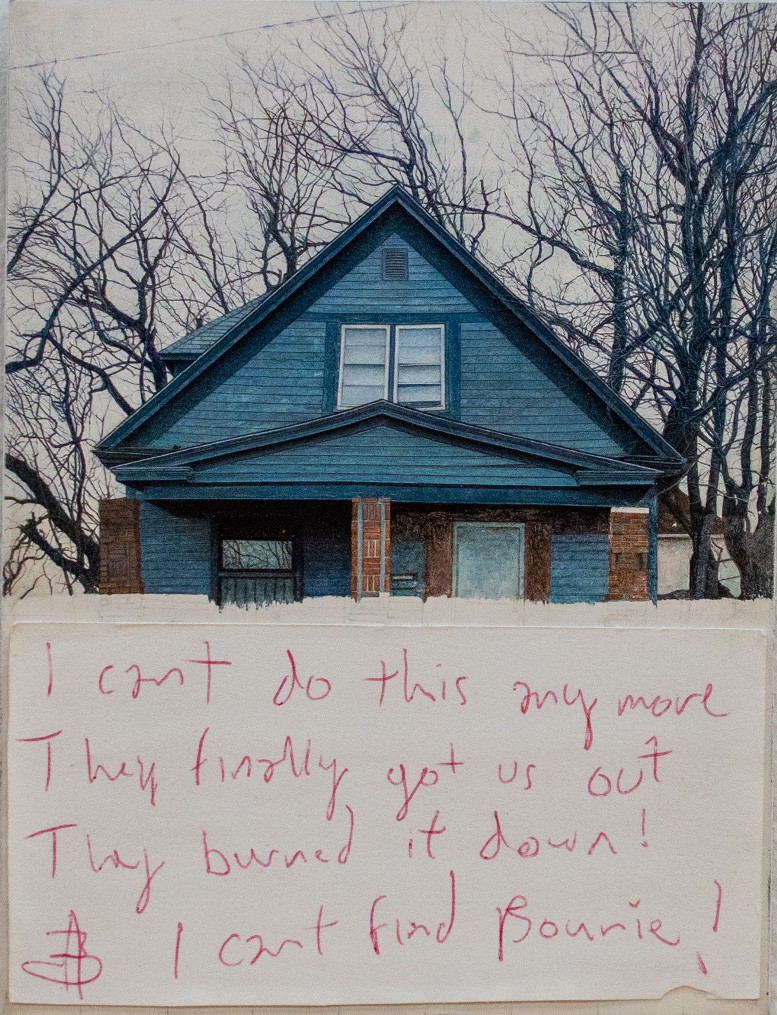 I cant do this any more
They finally got us out
They burned it down!
I cant find Bounie!